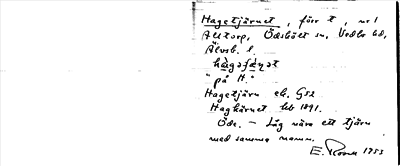 Hagetjärnet, förr t, nr 1
Alltorp, Ödskölt sn, Vedbo hd,
Älvsb. l.
"på H."
Hagetjärn ek. G52
Hagkärnet hb 1891.
Öde. – Låg nära ett tjärn
med samma namn.
E. Rosén 1953